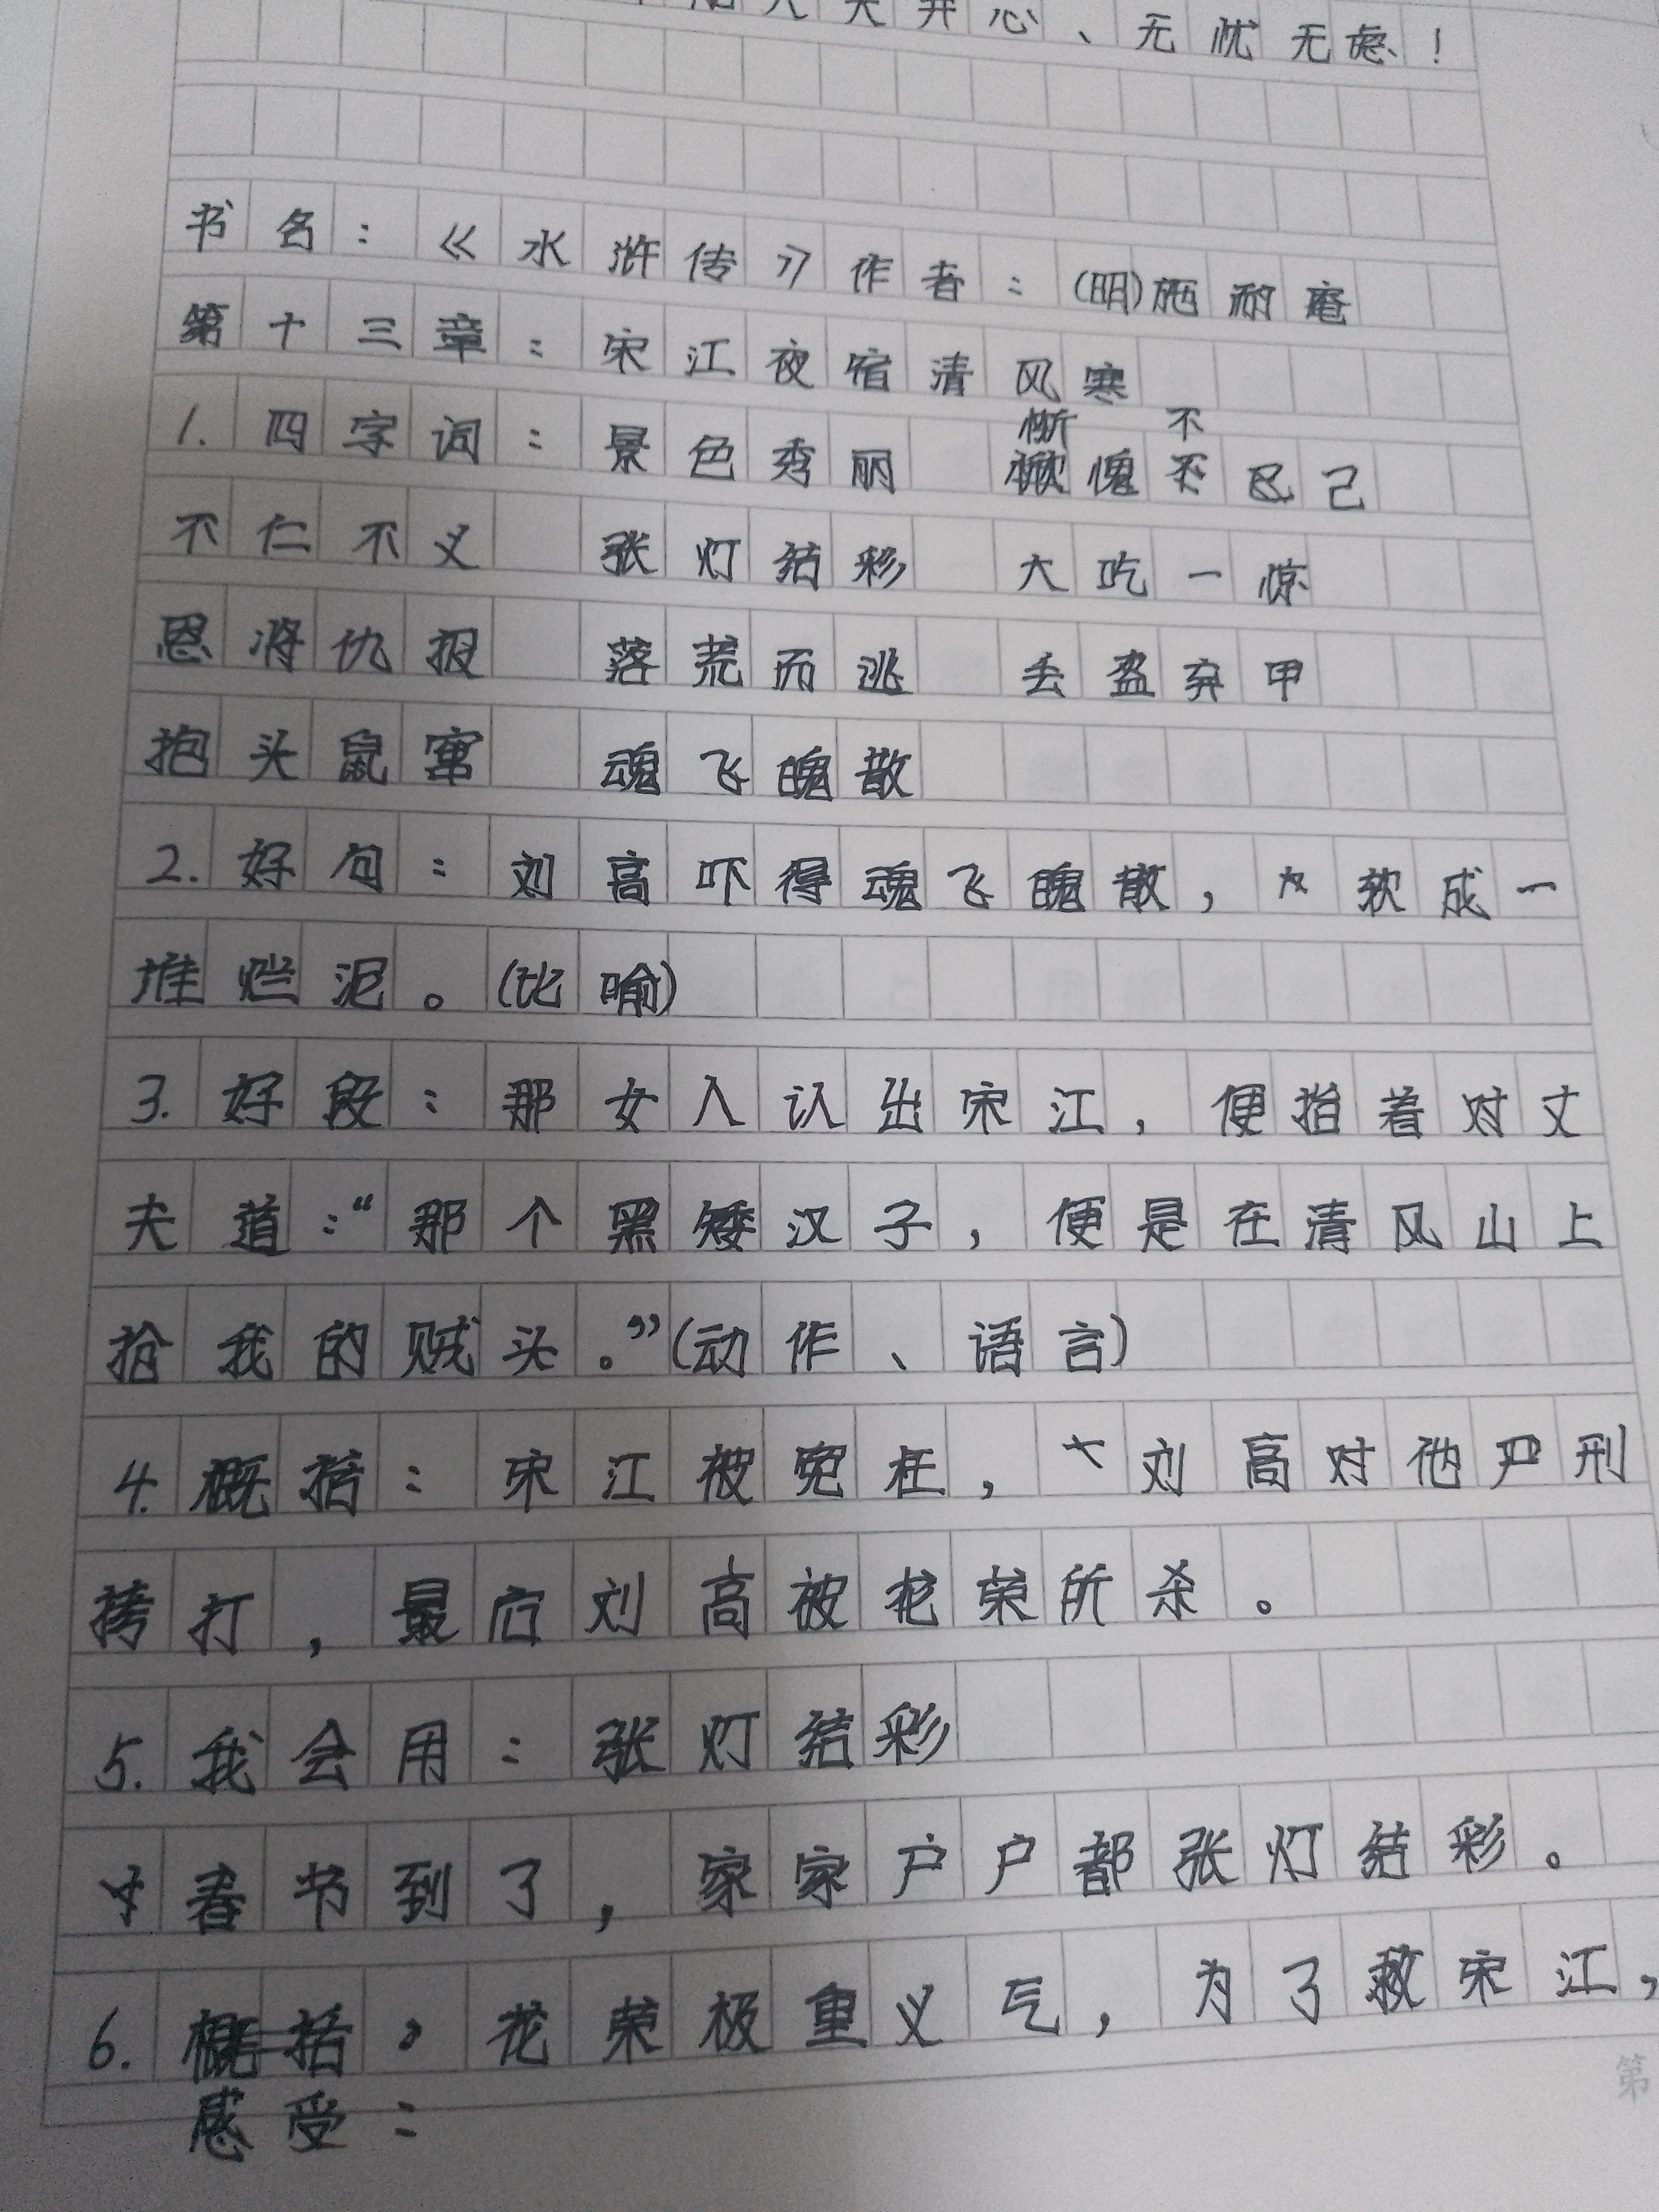 天天开心、无忧无虑！
书名：《水浒传》作者：(明)施耐庵
第十三章：宋江夜宿清风寨
1.四字词：景色秀丽 惭愧不已
不仁不义 张灯结彩 大吃一惊
恩将仇报 落荒而逃 丢盔弃甲
抱头鼠窜 魂飞魄散
2.好句：刘高吓得魂飞魄散，软成一
堆烂泥。(比喻)
3.好段：那女人认出宋江，便指着对丈
夫道：“那个黑矮汉子，便是在清风山上
抢我的贼头。”(动作、语言)
4.概括：宋江被冤枉，刘高对他严刑
拷打，最后刘高被花荣所杀。
5.我会用：张灯结彩
春节到了，家家户户都张灯结彩。
6.概括：花荣极重义气，为了救宋江，
感受：
第